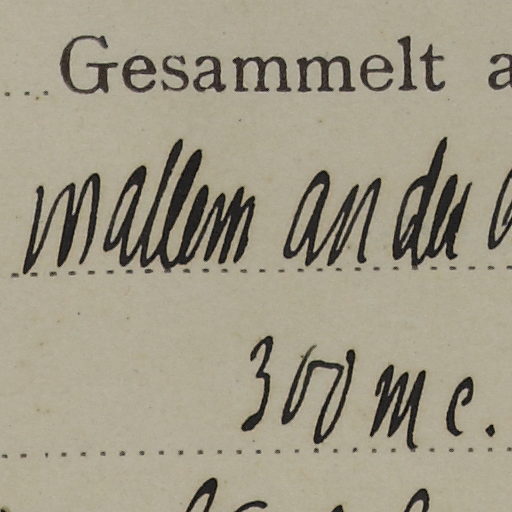 Gesammelt a
mallem an der
300 m c.